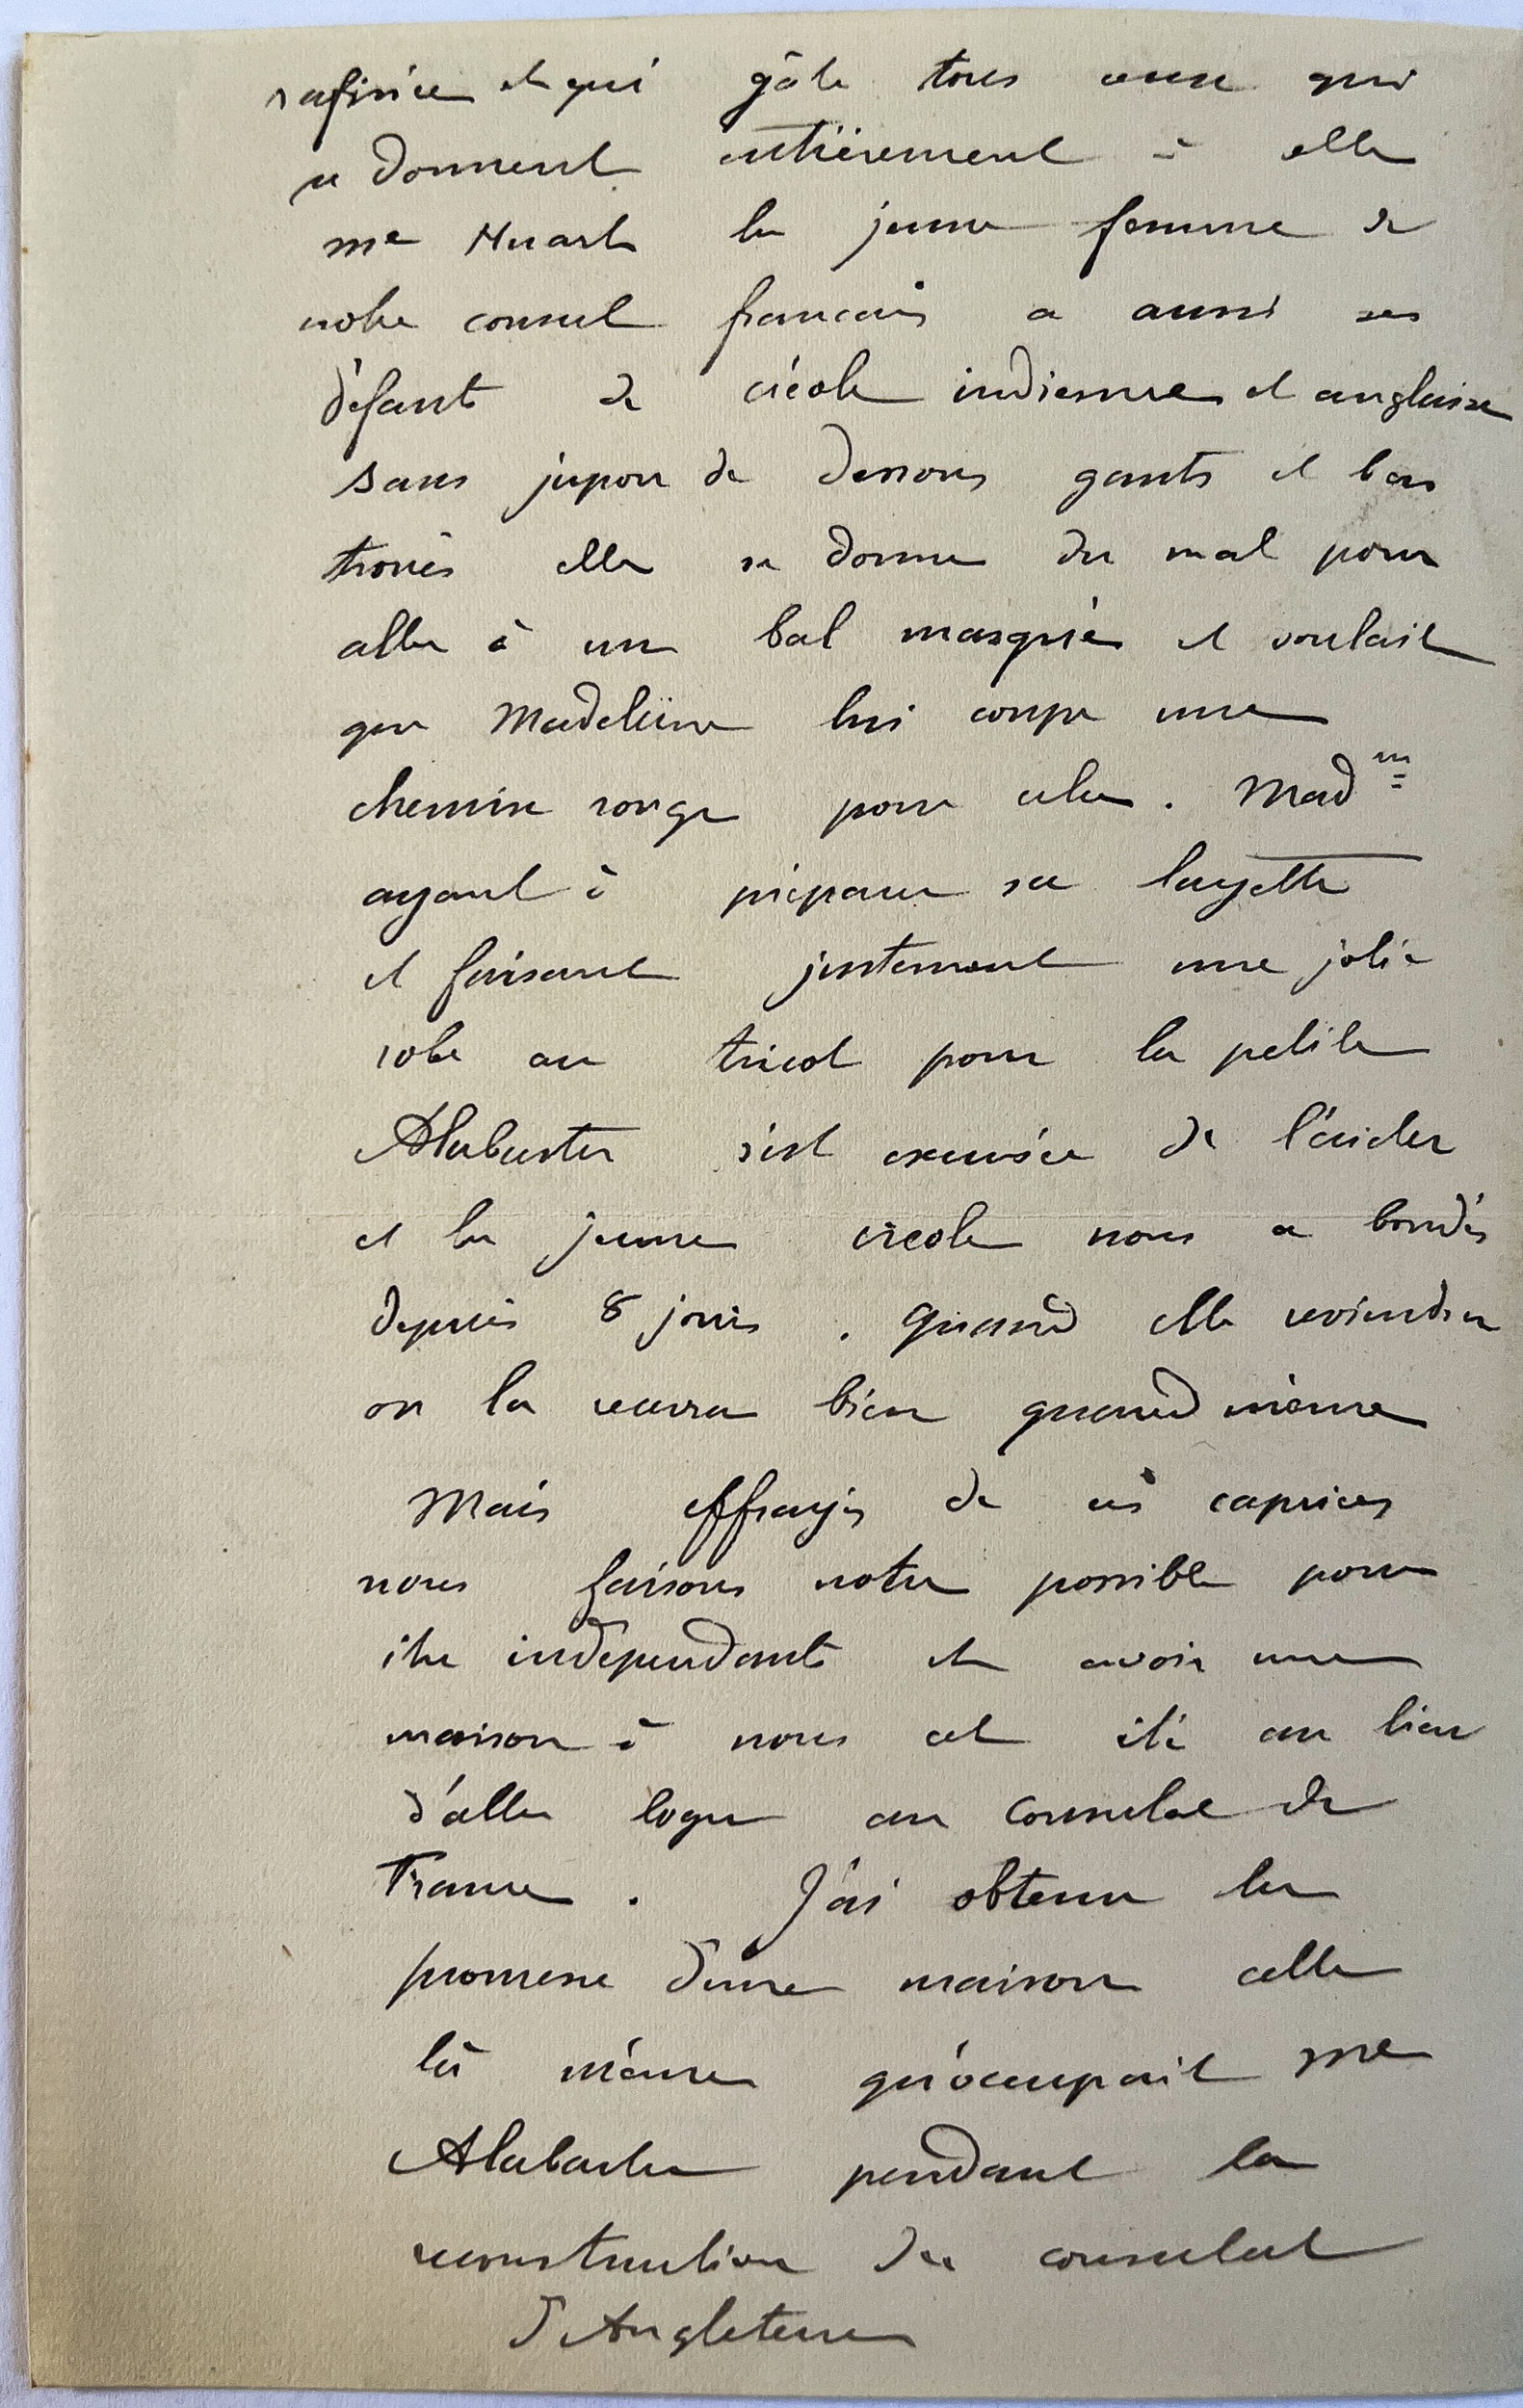 rafinée et qui gâte tous ceux qui
se donnent entièrement à elle
me Huart la jeune femme de
notre consul francais a aussi ses
défauts de créole indienne et anglaise
sans jupon de dessous gants et bas
troués elle se donne du mal pour
aller à un bal masqué et voulait
que Madeleine lui coupe une
chemise rouge pour cela. Madne
ayant à préparer sa layette
et faisant justement une jolie
robe au tricot pour la petite
Alabaster s'est excusée de l'aider
et la jeune créole nous a boudés
depuis 8 jours. Quand elle reviendra
on la recevra bien quand même
Mais effrayés de ces caprices
nous faisons notre possible pour
être indépendants et avoir une
maison à nous cet été au lieu
d'aller loger au Consulat de
France. J'ai obtenu la
promesse d'une maison celle
là même qu'occupait me
Alabaster pendant la
reconstruction du consulat
d'Angleterre